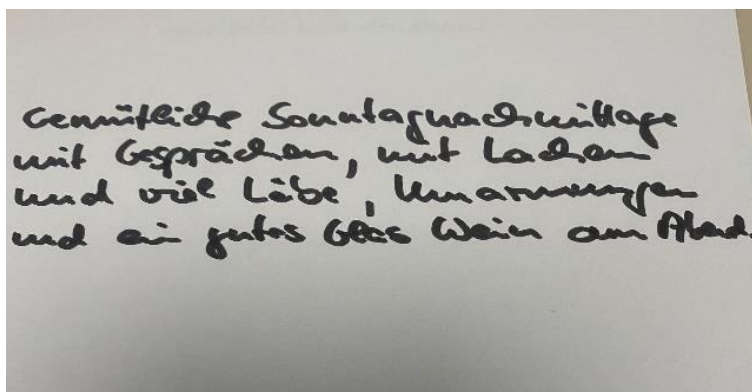 Gemütliche Sonntagnachmittage
mit Gesprächen, mit Lachen
und viel Liebe, Umarmungen
und ein gutes Glas Wein am Abend.